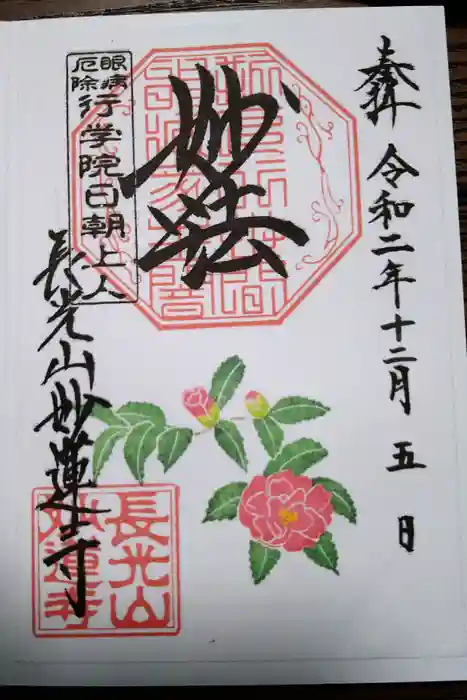 奉拝
令和二年十二月五日
妙法
眼病
厄除
行学院日朝上人
長光山妙蓮寺
長光山
妙蓮寺